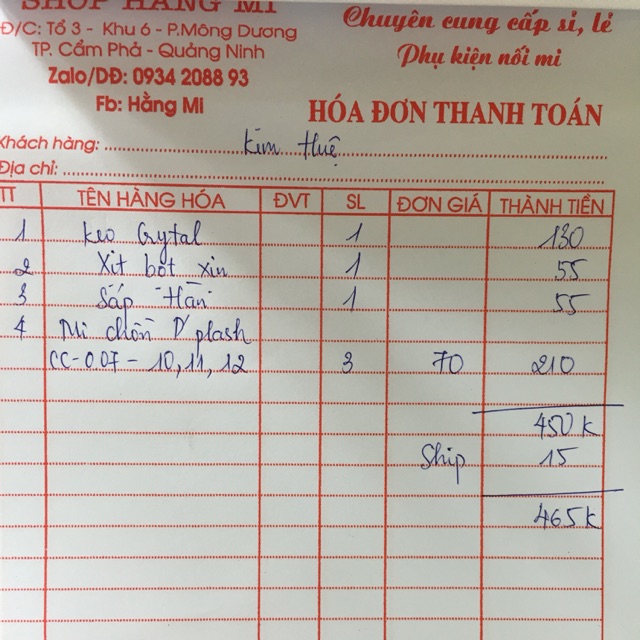 SHOP HẰNG MI
Đ/C: Tổ 3 - Khu 6 - P.Mông Dương
TP. Cẩm Phả - Quảng Ninh
Zalo/DĐ: 0934 2088 93
Fb: Hằng Mi
Chuyên cung cấp sỉ, lẻ
Phụ kiện nối mi
HÓA ĐƠN THANH TOÁN
Khách hàng: Kim Huệ
Địa chỉ:
TT TÊN HÀNG HÓA ĐVT SL ĐƠN GIÁ THÀNH TIỀN
1 Keo Crytal 1 130
2 Xịt bọt xịn 1 55
3 Sáp "Hàn" 1 55
4 Mi chồn D' plash
CC-0.07 - 10, 11, 12 3 70 210
450 K
Ship 15
465K